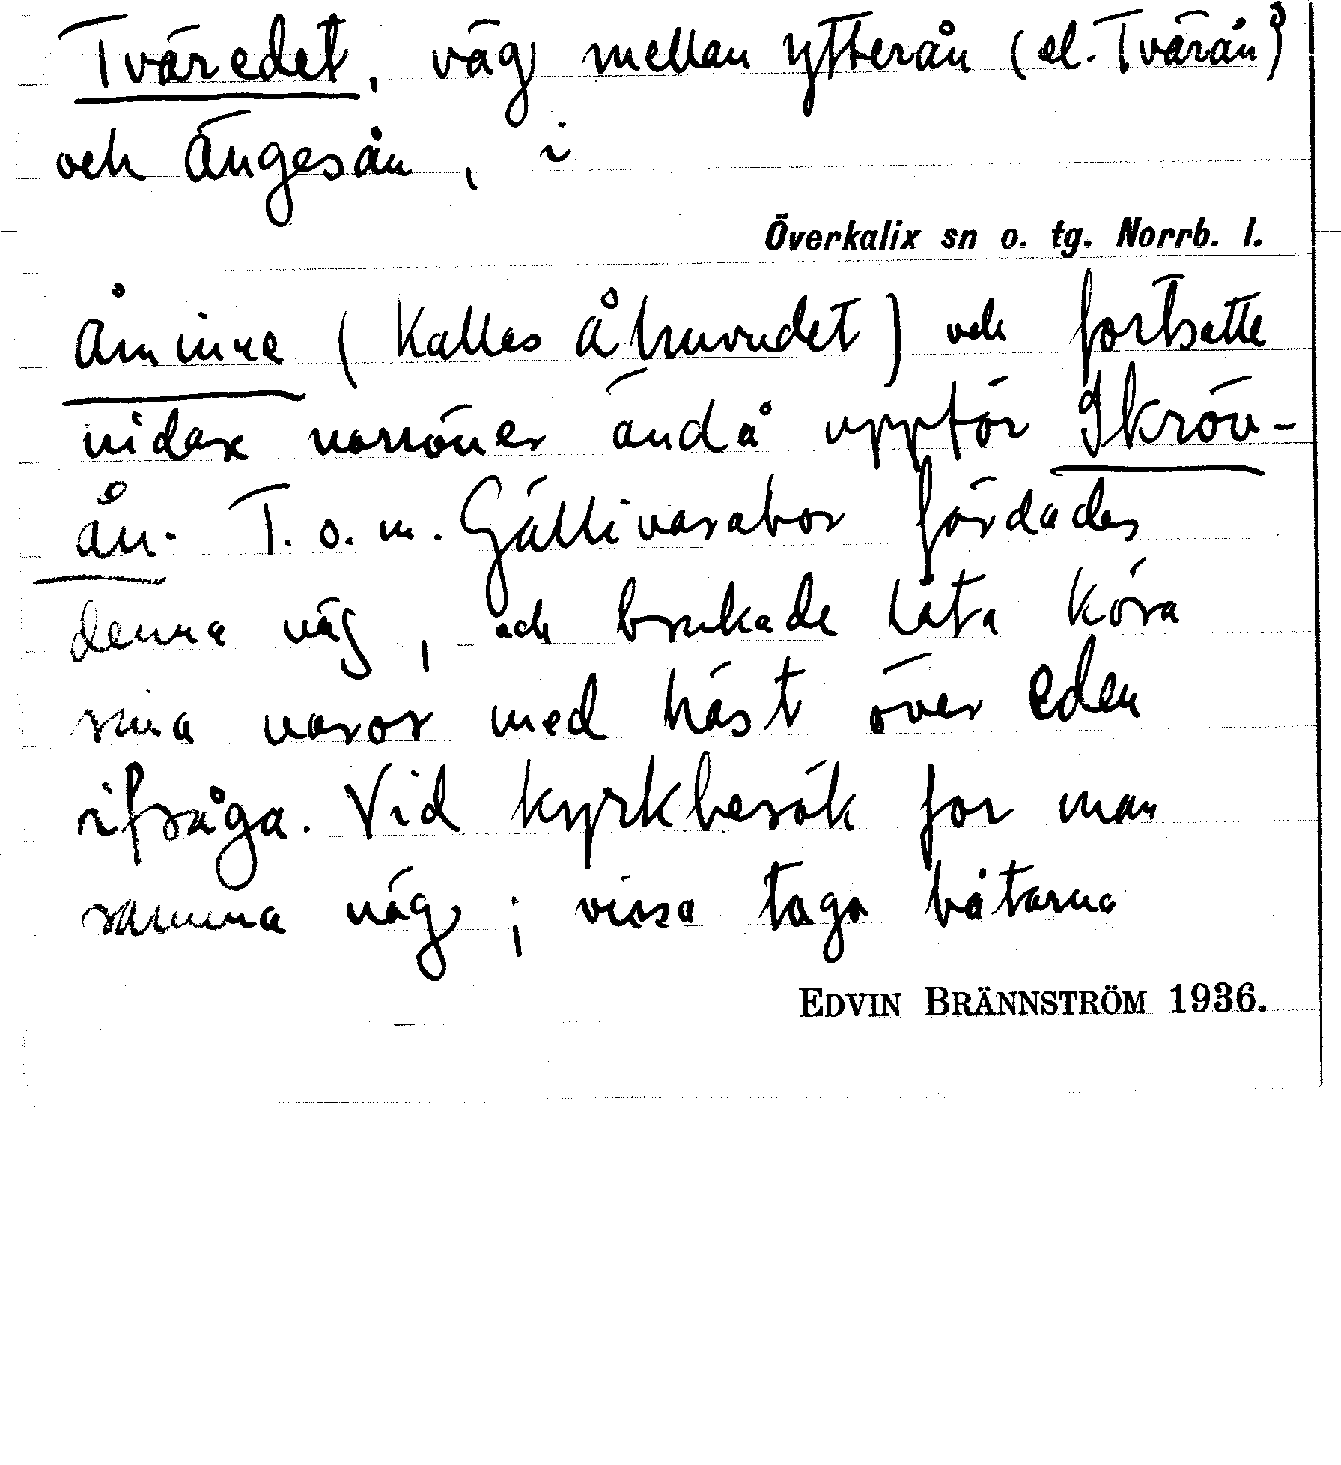 Tväredet, väg mellan Ytterån (el. Tvärån)
och Ängesån, i
Överkalix sn o. tg. Norrb. l.
Åminne (kallas Åhuvudet) och fortsette
vidare ändå uppför Skröv-
ån. T.o.m. Gällivarabor färdades
denna väg, och brukade låta köra
sina varor med häst över eden
ifråga. Vid kyrkbesök for man
samma väg; vissa taga båtarna
EDVIN BRÄNNSTRÖM 1936.